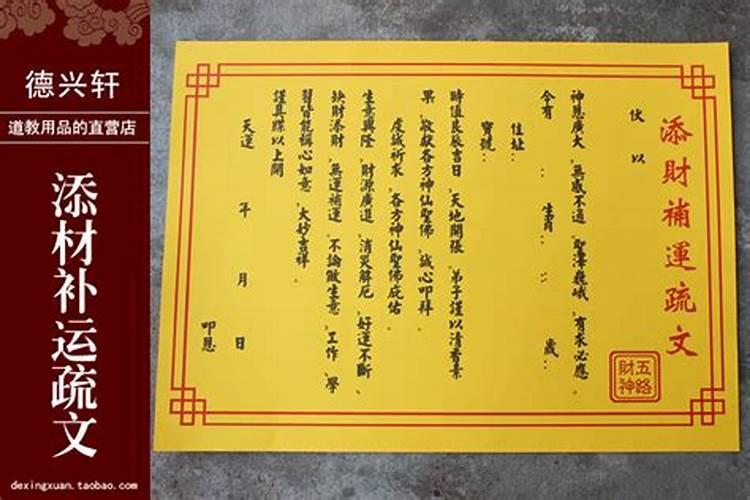 德兴轩
道教用品的直营店
添材补运疏文
dexingxuan.taobao.com
添財補運疏文
五路
財神
伏以
神恩廣大、無感不通、聖澤巍峨、有求必應。
今有 : 生肖 : : 歲。
住址:
寶號:
時值良辰吉日、天地開張、弟子謹以清香素
果、敬献各方神仙聖佛、誠心叩拜。
虔誠祈求、各方神仙聖佛庇佑。
生意興隆、財源廣進、消災解厄、好運不斷、
缺財添財、無運補運、不論做生意、工作、學
習皆能稱心如意、大妙吉祥。
謹具牒以上聞
天運 年 月 日 叩恩